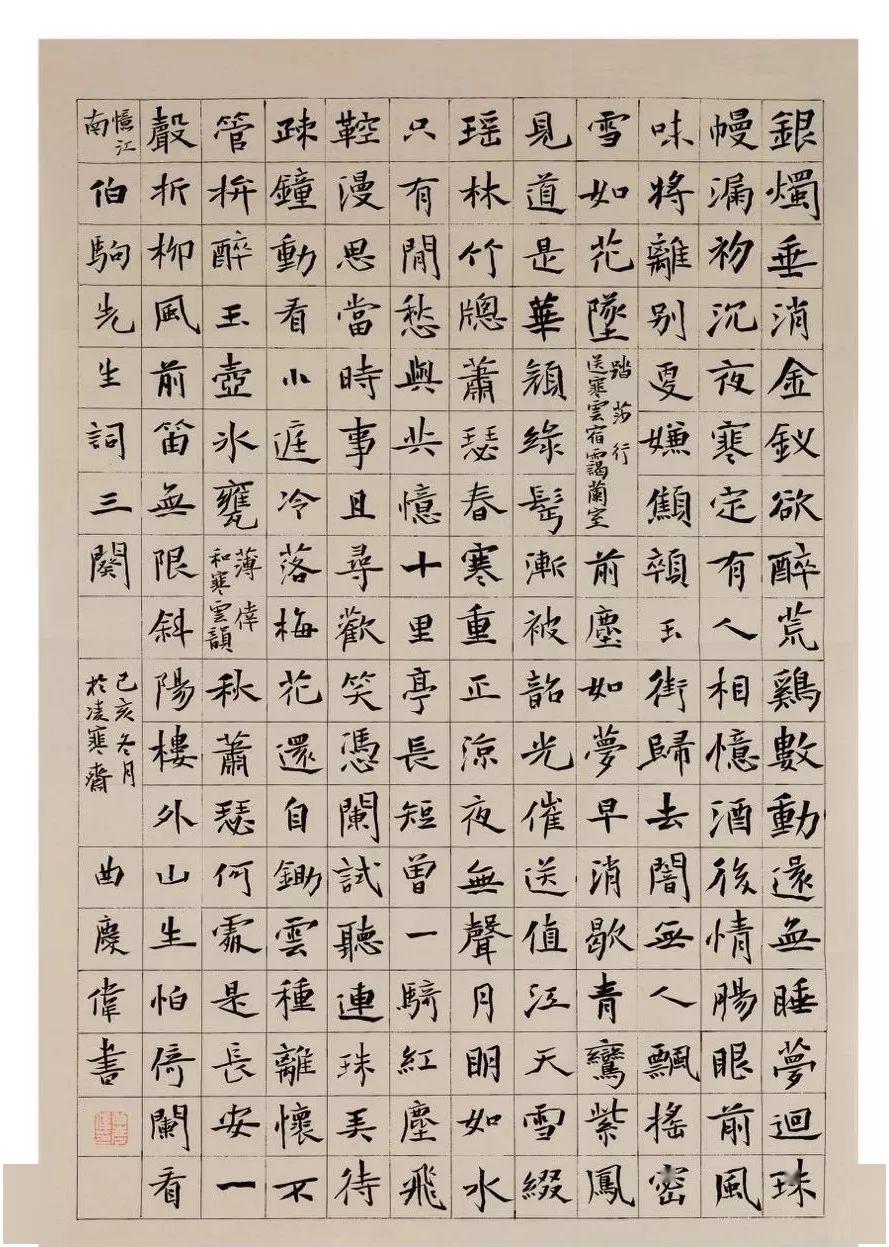 銀燭垂消金釵欲醉荒鷄數動還無睡夢迴珠
幔漏初沉夜寒定有人相憶酒後情腸眼前風
味將離別更嫌顦顇玉街歸去闇無人飄搖密
雪如花墜
踏莎行
送寒雲宿靄蘭室
前塵如夢早消歇青鸞紫鳳
見道是華顛綠髩漸被韶光催送值江天雪綴
瑶林竹牕蕭瑟春寒重正涼夜無聲月明如水
只有閒愁與共憶十里亭長短曾一騎紅塵飛
鞚漫思當時事且尋歡笑憑闌試聽連珠弄待
疎鐘動看小庭冷落梅花還自鋤雲種離懷不
管拚醉玉壺冰甕
薄倖
和寒雲韻
秋蕭瑟何處是長安一
聲折柳風前笛無限斜陽樓外山生怕倚闌看
憶江
南
伯駒先生詞三闋
己亥冬月
於凌寒齋
曲慶偉書